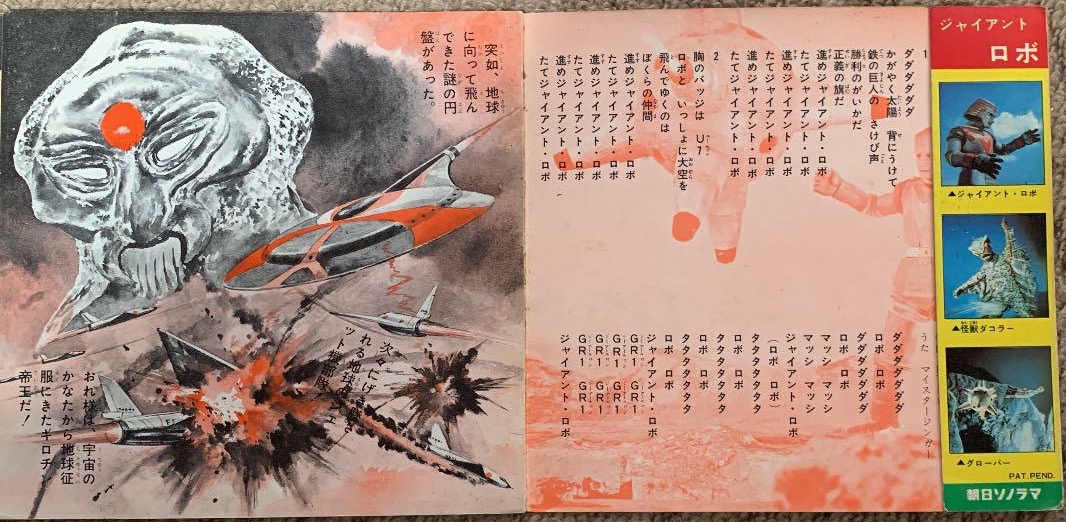 ジャイアント
ロボ
▲ジャイアント・ロボ
▲怪獣ダコラー
▲グローバー
PAT.PEND.
朝日ソノラマ
うた マイスタージンガー
1
ダダダダダダ
かがやく太陽 背にうけて
鉄の巨人の さけび声
勝利のがいかだ
正義の旗だ
進めジャイアント・ロボ
たてジャイアント・ロボ
進めジャイアント・ロボ
たてジャイアント・ロボ
進めジャイアント・ロボ
たてジャイアント・ロボ
2
胸のバッジは U7
ロボと いっしょに大空を
飛んでゆくのは
ぼくらの仲間
進めジャイアント・ロボ
たてジャイアント・ロボ
進めジャイアント・ロボ
たてジャイアント・ロボ
進めジャイアント・ロボ
たてジャイアント・ロボ
ダダダダダダダ
ロボ ロボ
ダダダダダダダ
ロボ ロボ
マッシ マッシ
マッシ マッシ
ジャイアント・ロボ
(ロボ ロボ)
タタタタタタタ
ロボ ロボ
タタタタタタタ
ロボ ロボ
タタタタタタタ
ロボ ロボ
ジャイアント・ロボ
GR1 GR1
GR1 GR1
GR1 GR1
ジャイアント・ロボ
突如、地球
に向って飛ん
できた謎の円
盤があった。
次々にげき
れる地球
ット機部隊
おれ様は、宇宙の
かなたから地球征
服にきたギロチン
帝王だ!